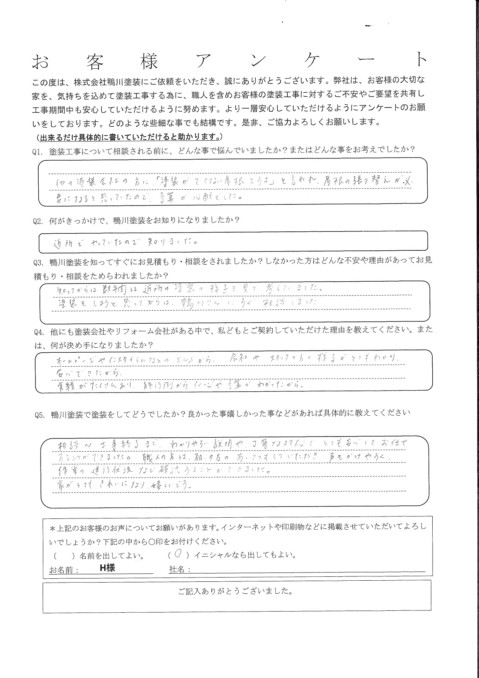 お客様アンケート
この度は、株式会社鴨川塗装にご依頼をいただき、誠にありがとうございます。弊社は、お客様の大切な
家を、気持ちを込めて塗装工事する為に、職人を含めお客様の塗装工事に対するご不安やご要望を共有し
工事期間中も安心していただけるように努めます。より一層安心していただけるようにアンケートのお願
いをしております。どのような些細な事でも結構です。是非、ご協力よろしくお願いします。
（出来るだけ具体的に書いていただけると助かります。）
Q1. 塗装工事について相談される前に、どんな事で悩んでいましたか？またはどんな事をお考えでしたか？
他の塗装会社の方に「塗装ができない屋根である」と言われ、屋根の張り替えが必
要になると思っていたので、予算が心配でした。
Q2. 何がきっかけで、鴨川塗装をお知りになりましたか？
近所でやっていたので知りました。
Q3. 鴨川塗装を知ってすぐにお見積もり・相談をされましたか？しなかった方はどんな不安や理由があってお見
積もり・相談をためらわれましたか？
知ってからは数年間は近所の塗装の様子を見て考えていました。
塗装をしようと思ってからは、鴨川さんにすぐ相談しました
Q4. 他にも塗装会社やリフォーム会社がある中で、私どもとご契約していただけた理由を教えてください。また
は、何が決め手になりましたか？
ホームページや
安心できたから。
実績がたくさんあり、施行例から や予算がわかったから。
Q5. 鴨川塗装で塗装をしてどうでしたか？良かった事嬉しかった事などがあれば具体的に教えてください
相談から工事終了まで、わかりやすい説明や丁寧な とても安心してお任せ
することができました。職人の方は、朝・夕方の あいさつをしていただき 声もかけやすく、
作業の進行状況など確認することができました。
家がとてもきれいになり嬉しいです。
＊上記のお客様のお声についてお願いがあります。インターネットや印刷物などに掲載させていただいてよろし
いでしょうか？下記の中から〇印をお付けください。
（　）名前を出してよい。　（〇）イニシャルなら出してもよい。
お名前：　H様　社名：
ご記入ありがとうございました。